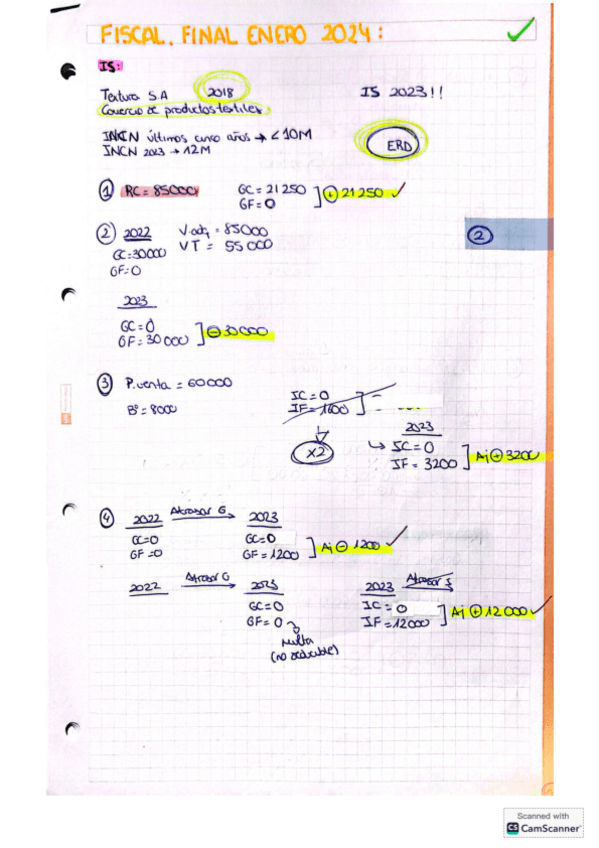 FISCAL. FINAL ENERO 2024:
IS:
Textura S.A 2018 IS 2023!!
Comercio de productos textiles.
INCN últimos cinco años → < 10M
INCN 2023 → 12M
ERD
① RC = 85000 GC = 21250
GF = 0
⊕ 21250 ✓
② 2022 V.adq = 85000
VT = 55000
GC = 30000
GF = 0
2
2023
GC = 0
GF = 30000
⊖ 30000
③ P. venta = 60000
Bº = 8000
IC = 0
IF = 1600
x2
2023
↳ IC = 0
IF = 3200
Aj ⊕ 3200
④ 2022 Atrasar G → 2023
GC = 0 GC = 0
GF = 0 GF = 1200
Aj ⊖ 1200 ✓
2022 Atrasar G → 2023 2023 Atrasar I →
GC = 0 IC = 0
GF = 0 IF = 12000
Aj ⊕ 12000 ✓
Multa
(no deducible)
Scanned with
CS CamScanner